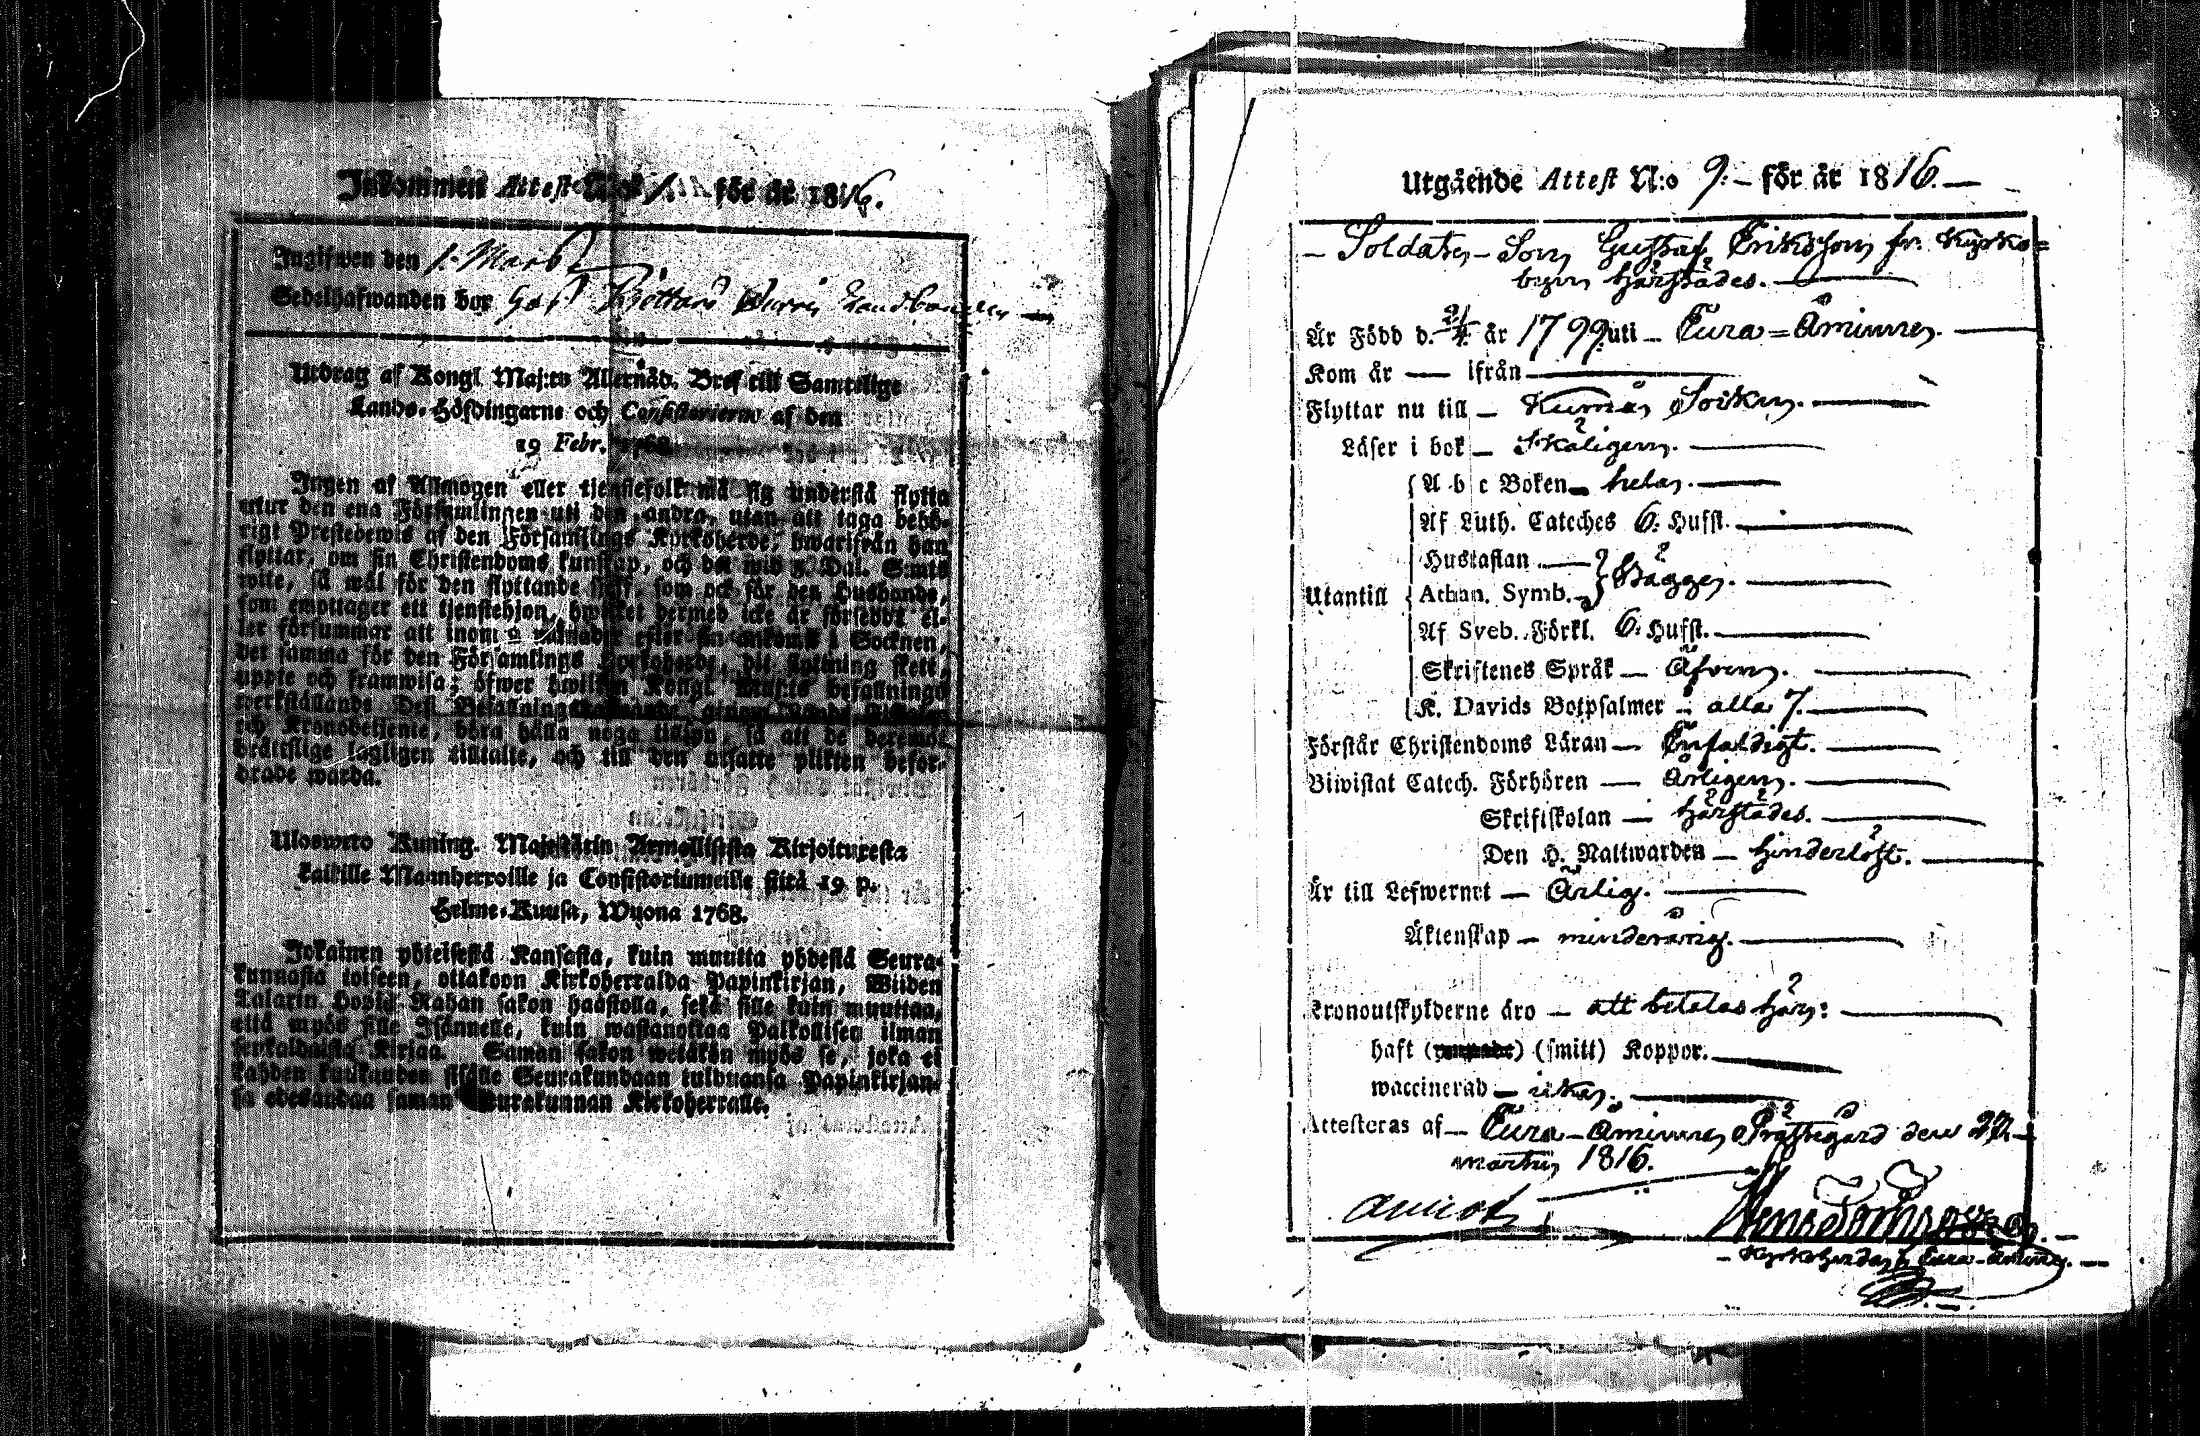 Inkommen Attest för år 1816.
Ingifwen den 1. Mars
Sedelhafwanden bor hos
Utdrag af Kongl. Maj:ts Allernåd. Bref till Samtelige
Lands-Höfdingarne och Consistorierne af den
19 Febr. 1768.
Ingen af Allmogen eller tjenstefolk må sig understå flytta
utur den ena Församlingen uti den andra, utan att taga behö-
rigt Prestebewis af den Församlings Kyrkoherde, hwarifrån han
flyttar, om sin Christendoms kunskap, och det wid 5 Dal. S:mts
wite, så wäl för den flyttande sjelf, som och för den Husbonde,
som emottager ett tjenstehjon, hwilket dermed icke är försedt el-
ler försummar att inom 2 månader efter sin ankomst i Socknen,
det samma för den Församlings Kyrkoherde, dit flyttning skett,
uppte och framwisa; öfwer hwilken Kongl. Maj:ts befallnings
werkställande Dess Befallningshafwande genom
och Kronobetjente, böra hålla noga tillsyn, så att de deremot
brottslige lagligen tilltalte, och till den utsatte plikten befor-
drade warda.
Uloswето Kuning. Majestätin Armollisesta Kirjoituxesta
kaikille Maanherroille ja Consistoriumeille siitä 19 p.
Helme-Kuusa, Wuona 1768.
Jokainen yhteisestä Kansasta, kuin muutta yhdestä Seura-
kunnasta toiseen, ottakoon Kirkoherralda Papinkirjan, Wiiden
Talarin Hopia Rahan sakon haastolla, sekä sille kuin muuttaa,
että myös sille Isännelle, kuin wastanottaa Palkollisen ilman
senkaldaista Kirjaa. Saman sakon wetäkön myös se, joka ei
kahden kuukauden sisälle Seurakundaan tulduansa Papinkirjan-
sa edesandaa saman Seurakunnan Kirkoherralle.
Utgående Attest N:o 9.– för år 1816.–
– Soldats-Son Gustaf Eriksson fr. Kyrko=
byn härstädes.
Är Född d. 21/4. år 1799 uti – Eura=Åminne.
Kom år — ifrån —
Flyttar nu till – Kumå Sokn.
Läser i bok – Skäligen.
A b c Boken – hela.
Af Luth. Cateches 6: Hufst.
Hustaflan
Athan. Symb. } Bägge.
Utantill
Af Sveb. Förkl. 6: Hufst.
Skriftenes Språk — Äfven.
K. Davids Botpsalmer – alla 7.
Förstår Christendoms Läran — Enfaldigt.
Biwistat Catech. Förhören — årligen.
Skriftskolan — härstädes.
Den H. Nattwarden – hinderlöst.
Är till Lefwernet – Ärlig.
Äktenskap – minderårig.
Kronoutskylderne äro – att betalas här:
haft (smitt) Koppor.
waccinerad – icke.
Attesteras af – Eura-Åminne Prästegård den 22
martii 1816.
Kyrkoherde i Eura-Åminne.